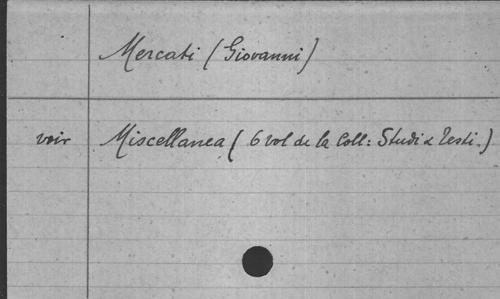 Mercati (Giovanni)
voir Miscellanea (6 vol de la Coll: Studi e Testi.)